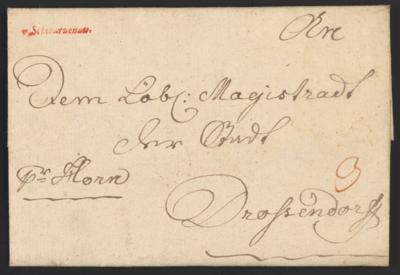 v. Schwartzenau.
Dem Löbl: Magistradt
der Stadt
pr Horn
3
Drossendorff